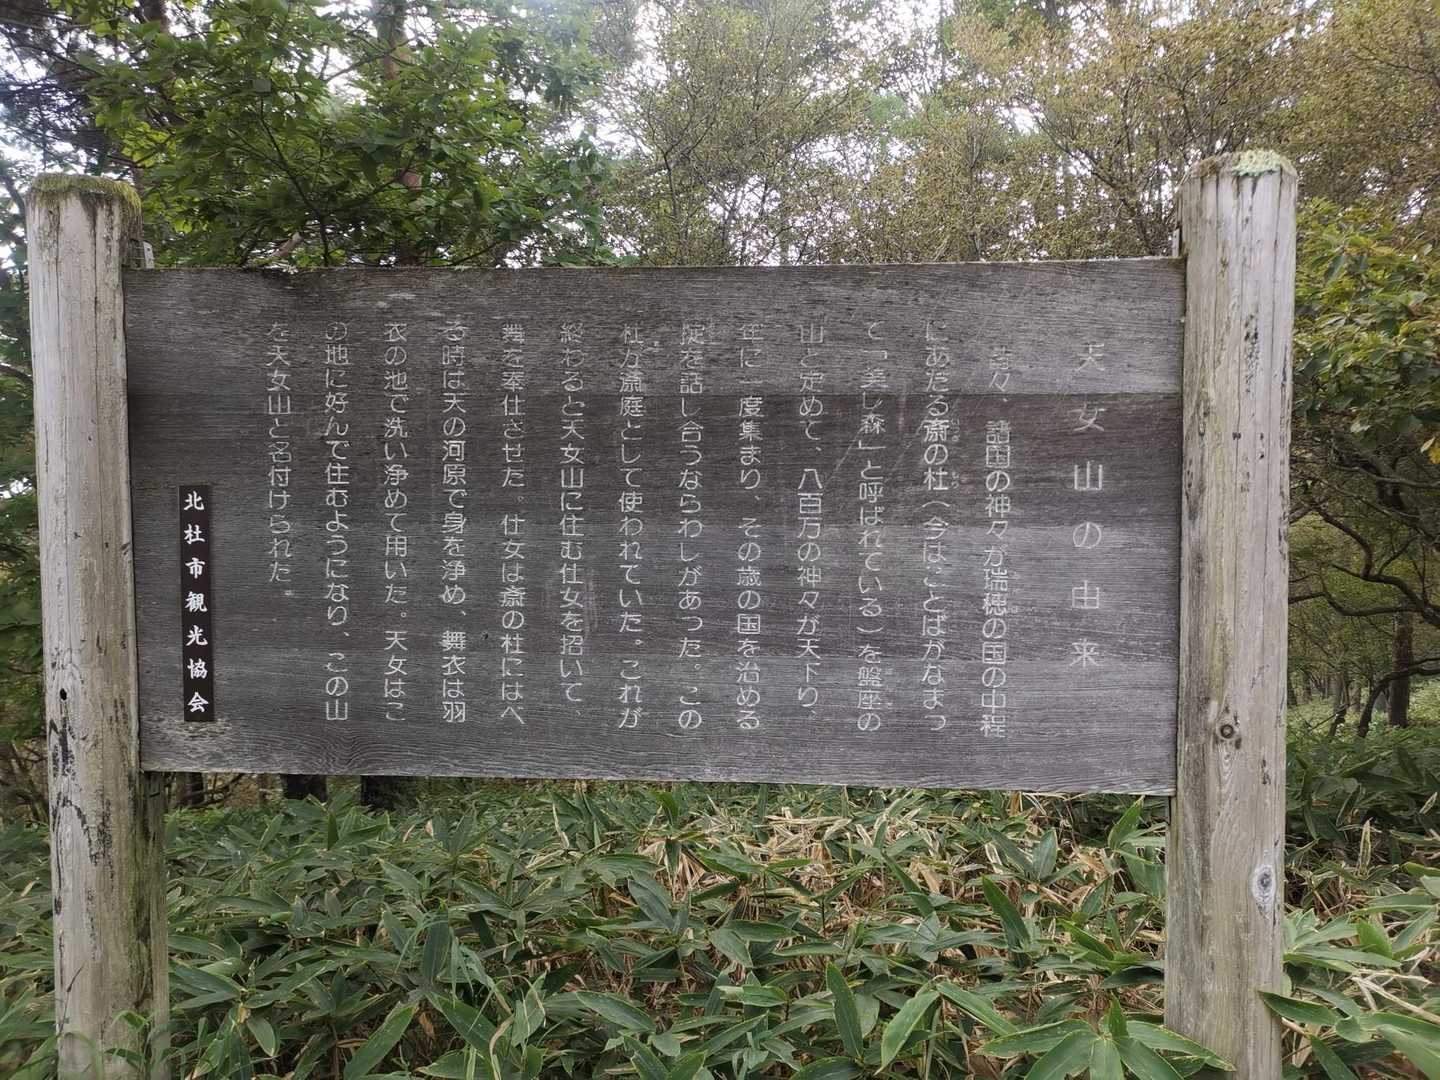 天女山の由来
昔々、諸国の神々が瑞穂の国の中程
にあたる斎の杜（今はことばがなまっ
て「美し森」と呼ばれている）を盤座の
山と定めて、八百万の神々が天下り、
年に一度集まり、その歳の国を治める
掟を話し合うならわしがあった。この
杜が斎庭として使われていた。これが
終わると天女山に住む仕女を招いて、
舞を奉仕させた。仕女は斎の杜にはべ
る時は天の河原で身を浄め、舞衣は羽
衣の池で洗い浄めて用いた。天女はこ
の地に好んで住むようになり、この山
を天女山と名付けられた。
北杜市観光協会